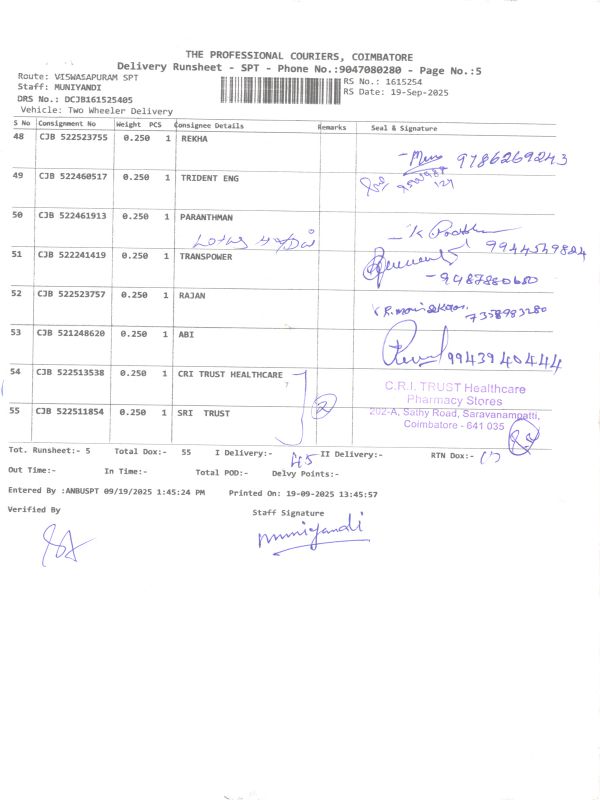 THE PROFESSIONAL COURIERS, COIMBATORE
Delivery Runsheet - SPT - Phone No.:9047080280 - Page No.:5
Route: VISWASAPURAM SPT
RS No.: 1615254
Staff: MUNIYANDI
RS Date: 19-Sep-2025
DRS No.: DCJB161525405
Vehicle: Two Wheeler Delivery
S No Consignment No Weight PCS Consignee Details Remarks Seal & Signature
48 CJB 522523755 0.250 1 REKHA
9786269243
49 CJB 522460517 0.250 1 TRIDENT ENG
50 CJB 522461913 0.250 1 PARANTHMAN
Lotus
51 CJB 522241419 0.250 1 TRANSPOWER
9487880600
52 CJB 522523757 0.250 1 RAJAN
7358993280
53 CJB 521248620 0.250 1 ABI
9943940444
54 CJB 522513538 0.250 1 CRI TRUST HEALTHCARE
7
C.R.I. TRUST Healthcare
Pharmacy Stores
2
55 CJB 522511854 0.250 1 SRI TRUST
202-A, Sathy Road, Saravanampatti,
Coimbatore - 641 035
Tot. Runsheet:- 5 Total Dox:- 55 I Delivery:- 45 II Delivery:- RTN Dox:-
Out Time:- In Time:- Total POD:- Delvy Points:-
Entered By :ANBUSPT 09/19/2025 1:45:24 PM Printed On: 19-09-2025 13:45:57
Verified By Staff Signature
muniyandi